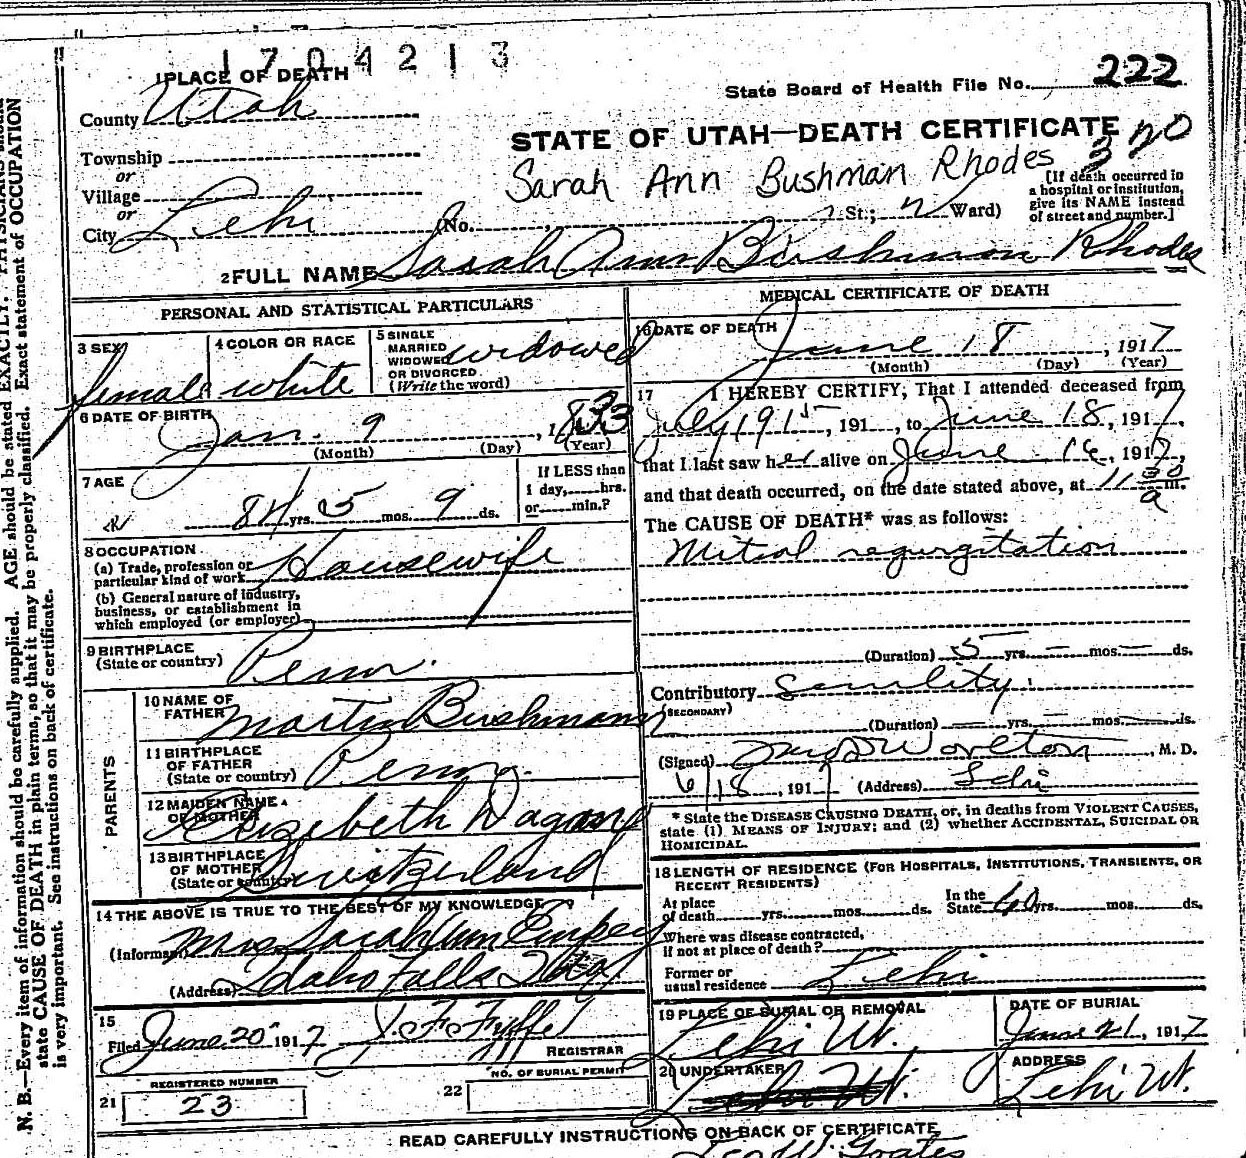 1704213
1 PLACE OF DEATH
State Board of Health File No. 222
County Utah
STATE OF UTAH—DEATH CERTIFICATE
320
Township
Sarah Ann Bushman Rhodes
or
Village
or
City Lehi
No. St.; Ward)
[If death occurred in
a hospital or institution,
give its NAME instead
of street and number.]
2 FULL NAME Sarah Ann Bushman Rhodes
PERSONAL AND STATISTICAL PARTICULARS
3 SEX female
4 COLOR OR RACE white
5 SINGLE
MARRIED
WIDOWED
OR DIVORCED.
(Write the word)
widowed
6 DATE OF BIRTH
Jan. 9, 1833
(Month) (Day) (Year)
7 AGE
84 yrs. 5 mos. 9 ds.
If LESS than
1 day, hrs.
or min.?
8 OCCUPATION
(a) Trade, profession or
particular kind of work Housewife
(b) General nature of industry,
business, or establishment in
which employed (or employer)
9 BIRTHPLACE
(State or country) Penn.
PARENTS
10 NAME OF
FATHER Martin Bushmann
11 BIRTHPLACE
OF FATHER
(State or country) Penn.
12 MAIDEN NAME
OF MOTHER Elizebeth Degen
13 BIRTHPLACE
OF MOTHER
(State or country) Switzerland
14 THE ABOVE IS TRUE TO THE BEST OF MY KNOWLEDGE
(Informant) Mrs Sarah Ann Empey
(Address) Idaho Falls
15
Filed June 20 1917 J. F. Fyffe
REGISTRAR
REGISTERED NUMBER
21 23
NO. OF BURIAL PERMIT
22
MEDICAL CERTIFICATE OF DEATH
16 DATE OF DEATH
June 18, 1917
(Month) (Day) (Year)
17 I HEREBY CERTIFY, That I attended deceased from
July 1915, 191 , to June 18, 1917,
that I last saw her alive on June 16, 1917,
and that death occurred, on the date stated above, at 11 30 a m.
The CAUSE OF DEATH* was as follows:
Mitral regurgitation
(Duration) 5 yrs. — mos. — ds.
Contributory Senility.
(SECONDARY)
(Duration) — yrs. — mos. — ds.
(Signed) Worlton, M. D.
6/18, 1917 (Address) Lehi
* State the DISEASE CAUSING DEATH, or, in deaths from VIOLENT CAUSES,
state (1) MEANS OF INJURY; and (2) whether ACCIDENTAL, SUICIDAL OR
HOMICIDAL.
18 LENGTH OF RESIDENCE (FOR HOSPITALS, INSTITUTIONS, TRANSIENTS, OR
RECENT RESIDENTS)
At place
of death yrs. mos. ds.
In the
State 60 yrs. mos. ds.
Where was disease contracted,
if not at place of death?
Former or
usual residence Lehi
19 PLACE OF BURIAL OR REMOVAL
Lehi Ut.
DATE OF BURIAL
June 21, 1917
20 UNDERTAKER
Lehi Ut.
ADDRESS
Lehi Ut.
READ CAREFULLY INSTRUCTIONS ON BACK OF CERTIFICATE
Goates
N. B.—Every item of information should be carefully supplied. AGE should be stated EXACTLY. PHYSICIANS should
state CAUSE OF DEATH in plain terms, so that it may be properly classified. Exact statement of OCCUPATION
is very important. See instructions on back of certificate.